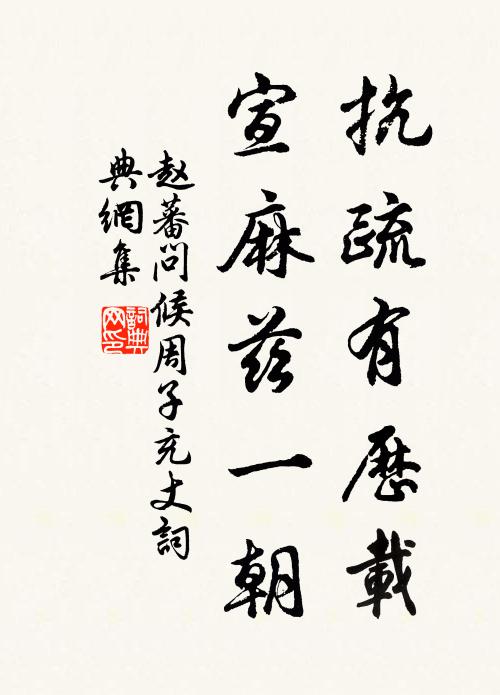 抗疏有歷載
宣麻兹一朝
赵蕃问候周子充丈詞
典網集
詞典网印